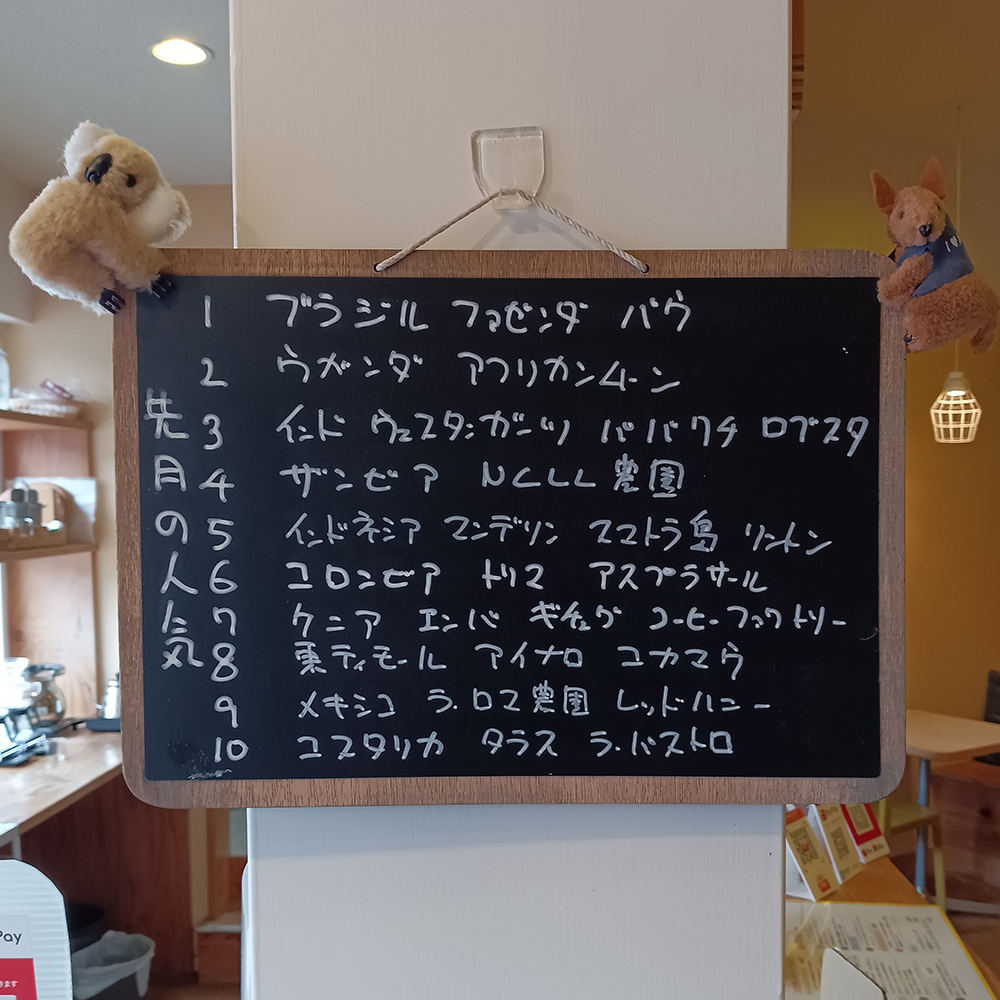 先月の人気
1 ブラジル ファゼンダ バウ
2 ウガンダ アフリカンムーン
3 インド ウエスタンガーツ ババワチ ロブスタ
4 ザンビア NCLL 農園
5 インドネシア マンデリン スマトラ島 リントン
6 コロンビア トリマ アスプラサール
7 ケニア エンバ ギチュグ コーヒーファクトリー
8 東ティモール アイナロ コカマウ
9 メキシコ ラ・ロマ農園 レッドハニー
10 コスタリカ タラス ラ・パストロ
Pay
きます